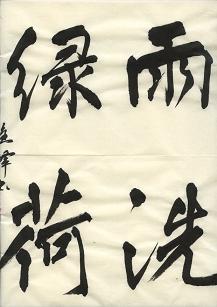 雨洗
绿荷